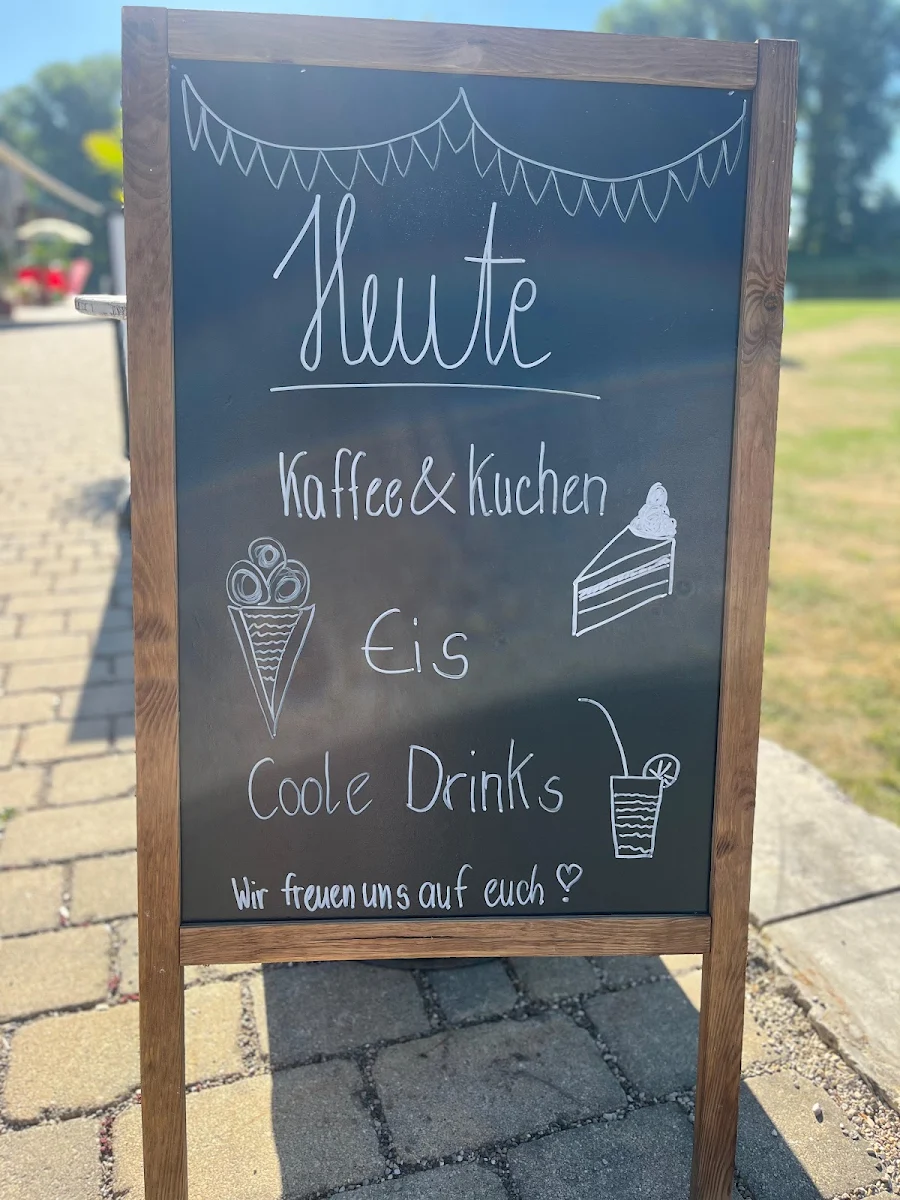 Heute
Kaffee & Kuchen
Eis
Coole Drinks
Wir freuen uns auf euch